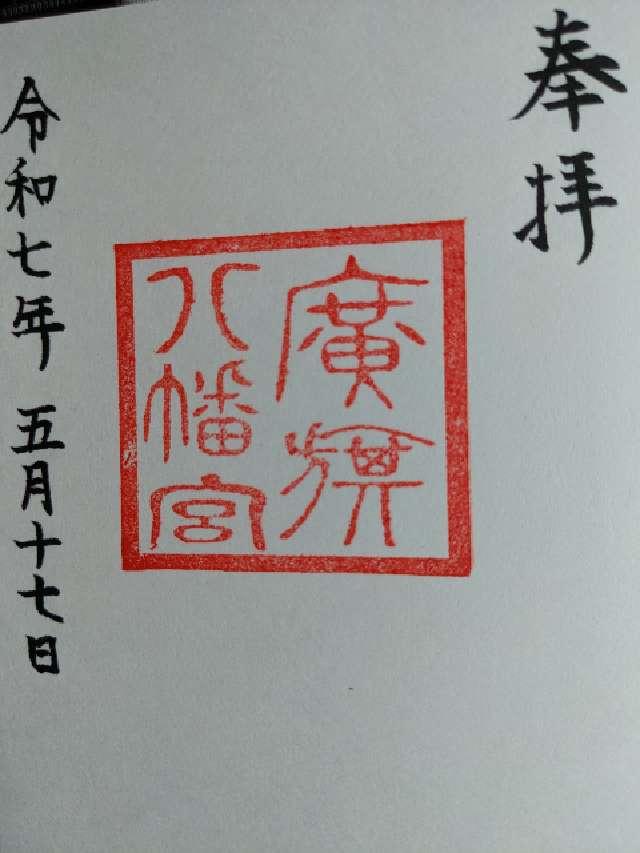 奉拝
廣旗
八幡宮
令和七年 五月十七日